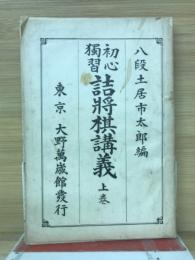 八段土居市太郎編
初心
獨習
詰將棋講義
上巻
東京 大野萬歳館發行